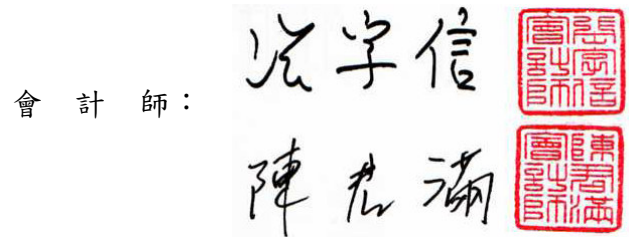 會計師：
張字信
張字信會計師
陳君滿
陳君滿會計師